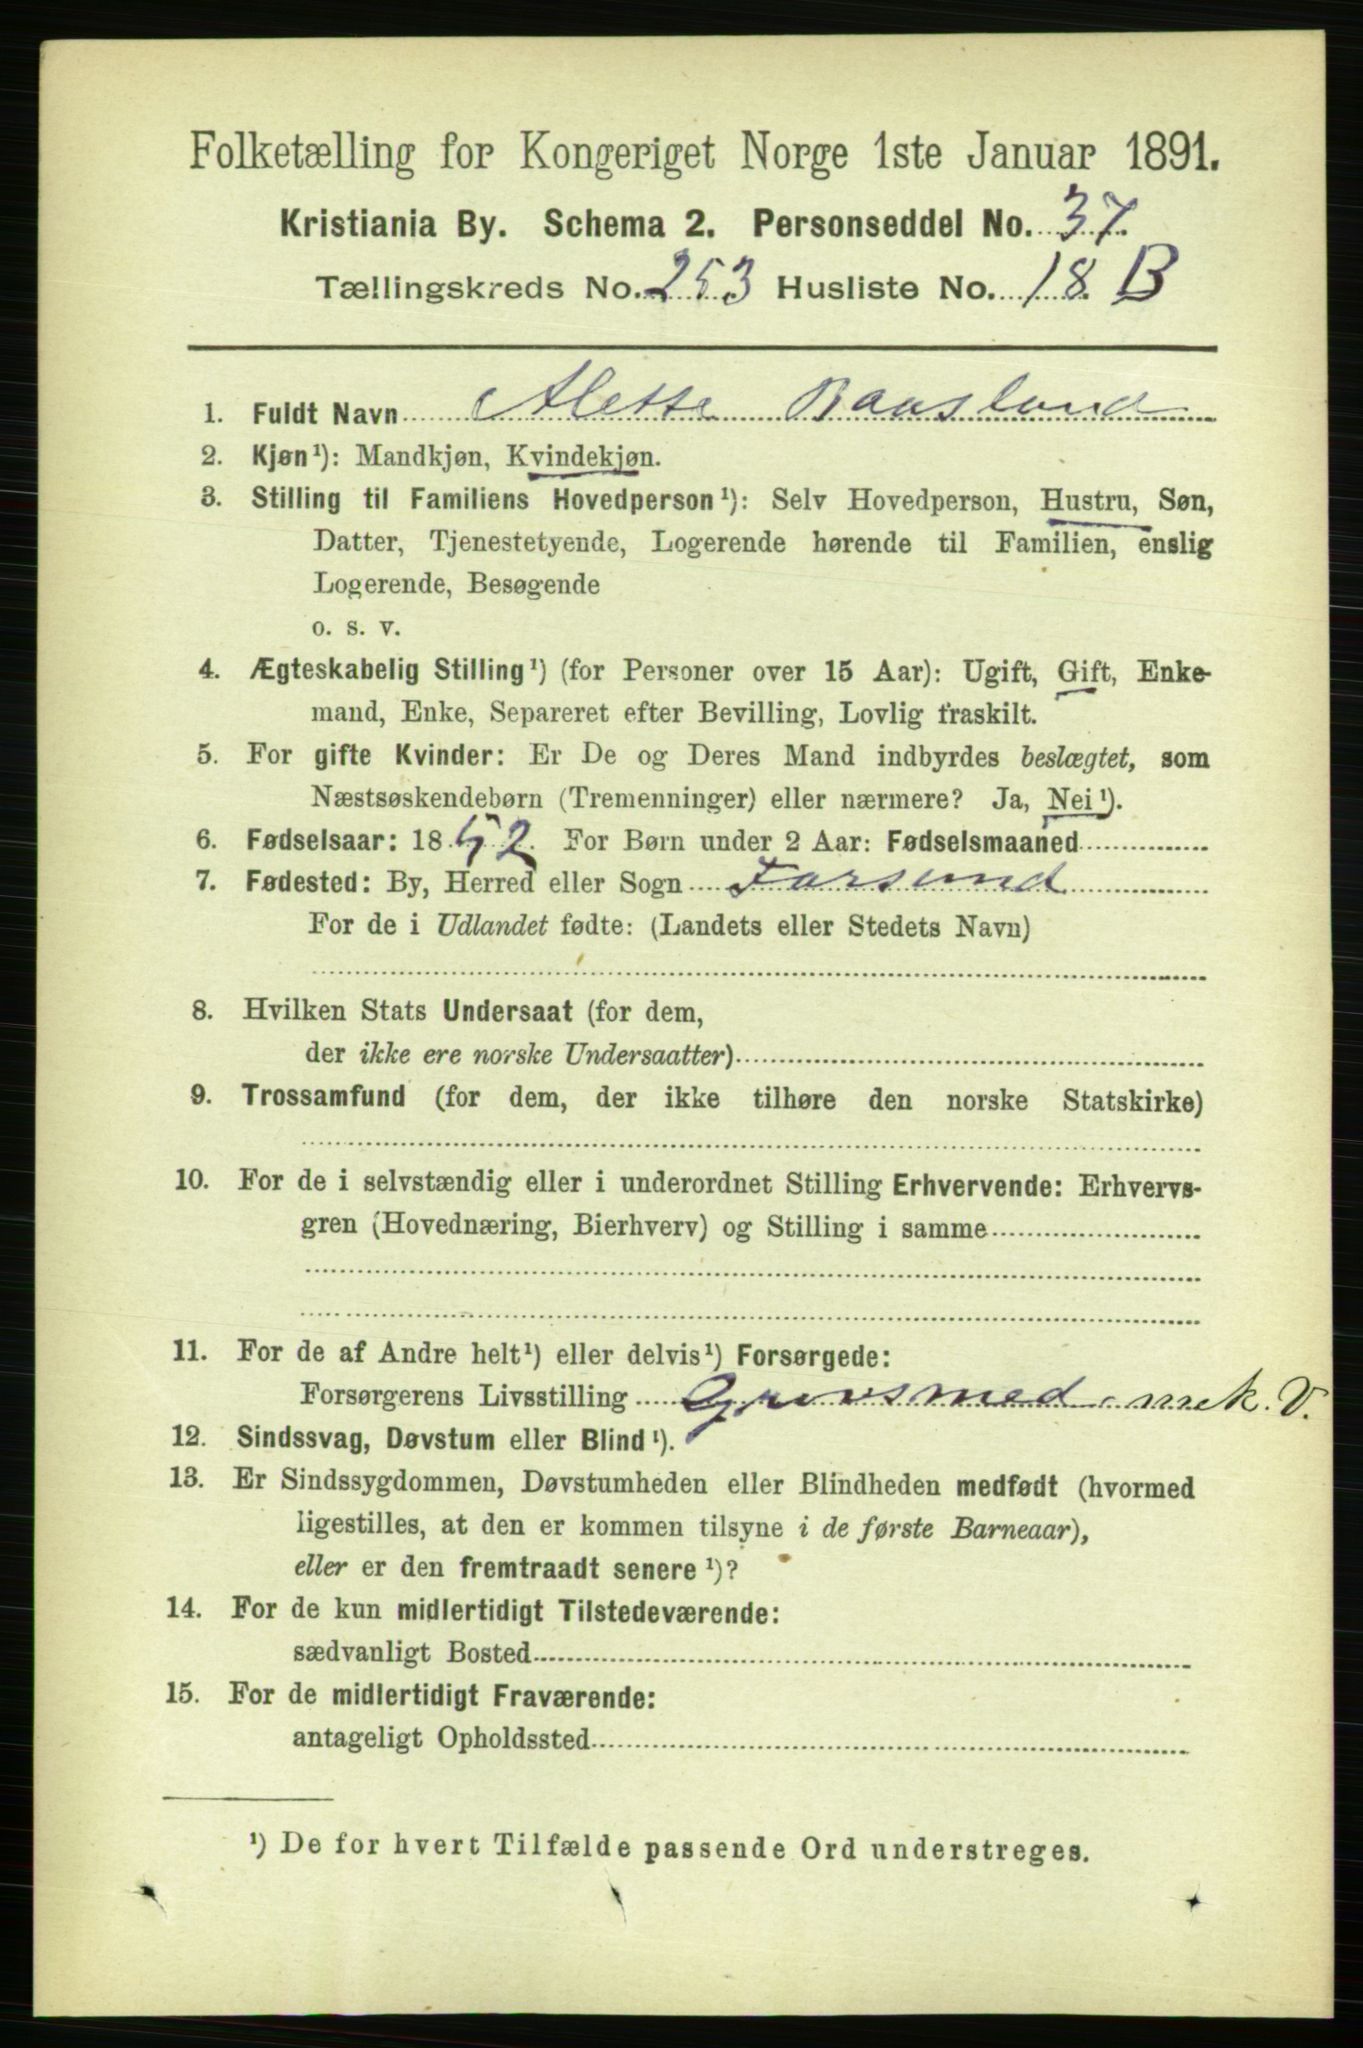 Folketælling for Kongeriget Norge 1ste Januar 1891.
Kristiania By. Schema 2. Personseddel No. 37.
Tællingskreds No. 253 Husliste No. 18. B
1. Fuldt Navn Alette Baasland
2. Kjøn¹): Mandkjøn, Kvindekjøn.
3. Stilling til Familiens Hovedperson¹): Selv Hovedperson, Hustru, Søn,
Datter, Tjenestetyende, Logerende hørende til Familien, enslig
Logerende, Besøgende
o. s. v.
4. Ægteskabelig Stilling¹) (for Personer over 15 Aar): Ugift, Gift, Enke-
mand, Enke, Separeret efter Bevilling, Lovlig fraskilt.
5. For gifte Kvinder: Er De og Deres Mand indbyrdes beslægtet, som
Næstsøskendebørn (Tremenninger) eller nærmere? Ja, Nei¹).
6. Fødselsaar: 1852. For Børn under 2 Aar: Fødselsmaaned
7. Fødested: By, Herred eller Sogn Farsund
For de i Udlandet fødte: (Landets eller Stedets Navn)
8. Hvilken Stats Undersaat (for dem,
der ikke ere norske Undersaatter)
9. Trossamfund (for dem, der ikke tilhøre den norske Statskirke)
10. For de i selvstændig eller i underordnet Stilling Erhvervende: Erhvervs-
gren (Hovednæring, Bierhverv) og Stilling i samme
11. For de af Andre helt¹) eller delvis¹) Forsørgede:
Forsørgerens Livsstilling Grovsmed mek. V.
12. Sindssvag, Døvstum eller Blind¹).
13. Er Sindssygdommen, Døvstumheden eller Blindheden medfødt (hvormed
ligestilles, at den er kommen tilsyne i de første Barneaar),
eller er den fremtraadt senere¹)?
14. For de kun midlertidigt Tilstedeværende:
sædvanligt Bosted
15. For de midlertidigt Fraværende:
antageligt Opholdssted
¹) De for hvert Tilfælde passende Ord understreges.